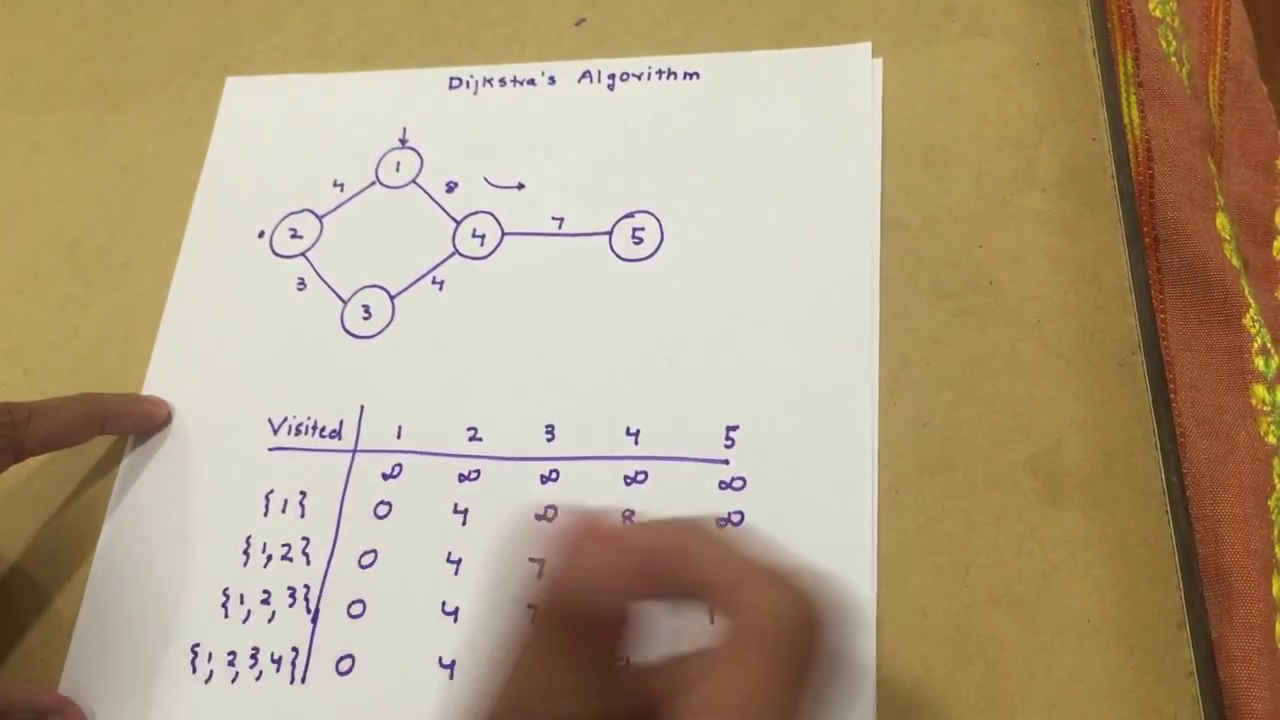 Dijkstra's Algorithm
1
4 8
2 4 7 5
3 4
3
Visited 1 2 3 4 5
∞ ∞ ∞ ∞ ∞
{1} 0 4 ∞ 8 ∞
{1,2} 0 4 7
{1,2,3} 0 4 7
{1,2,3,4} 0 4